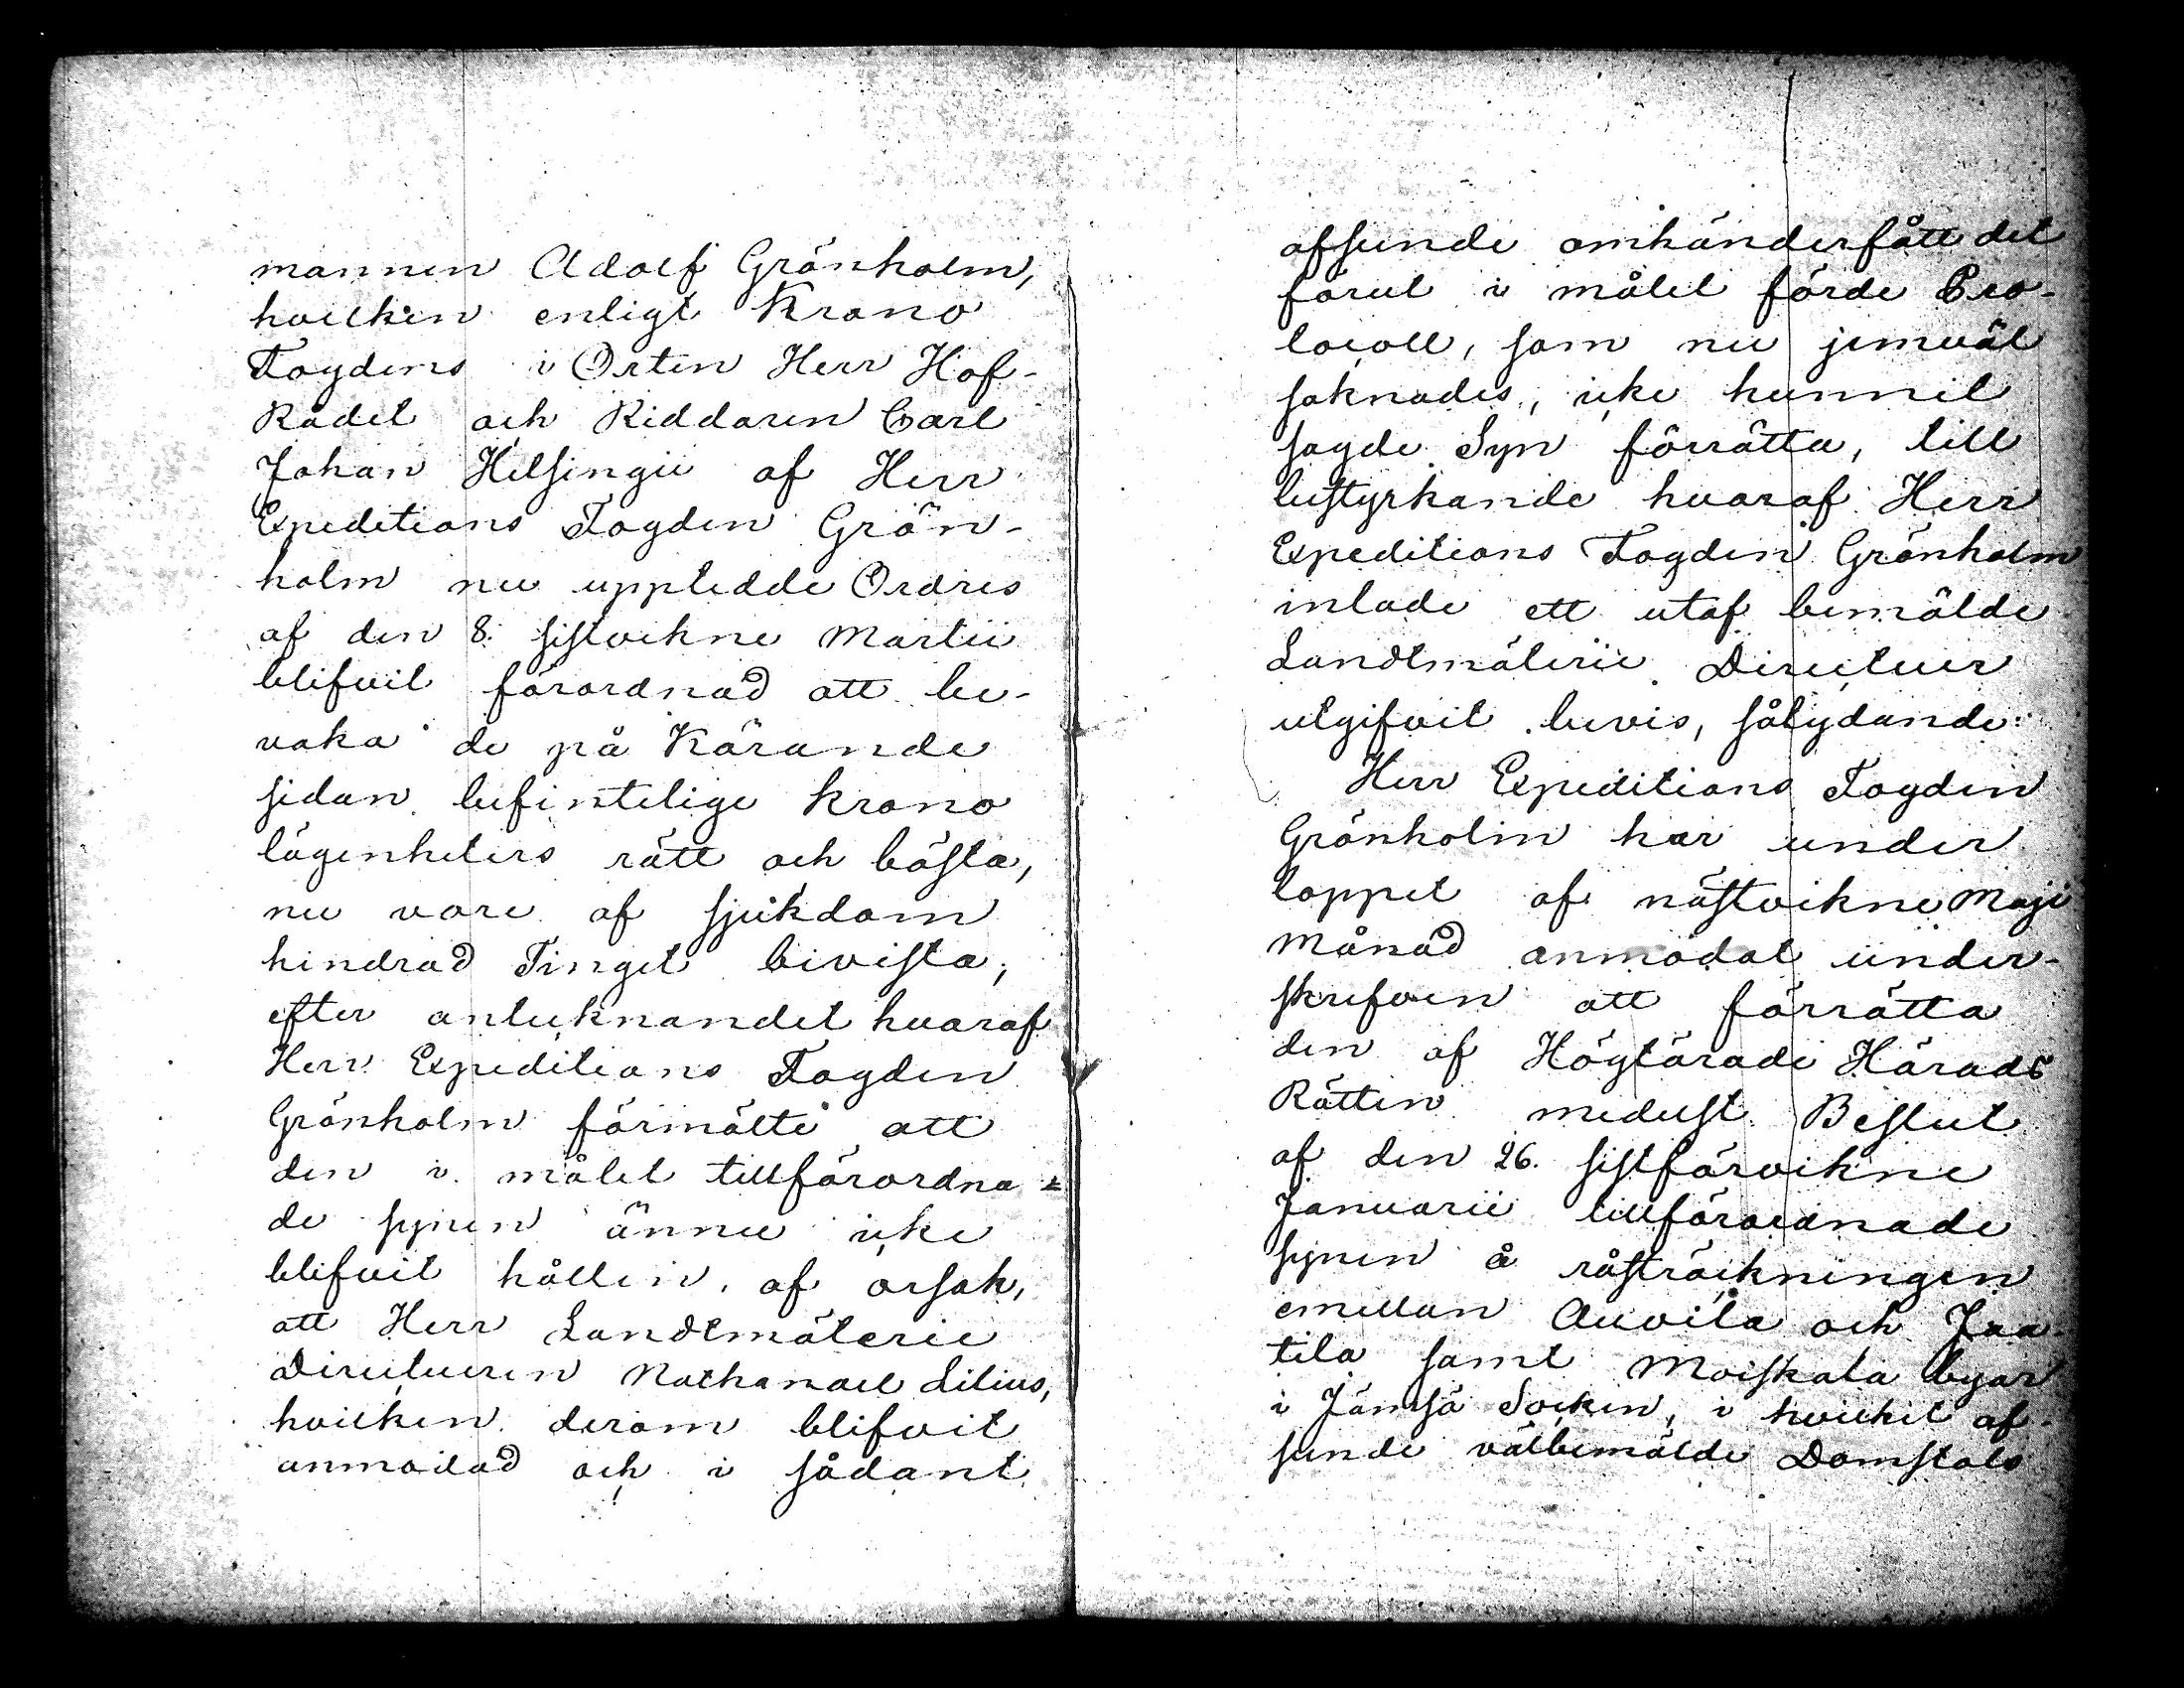 mannen Adolf Grönholm,
hvilken enligt Krono
Fogdens i Orten Herr Hof-
Rådet och Riddaren Carl
Johan Helsingii af Herr
Expeditions Fogden Grön-
holm nu uppledde Ordres
af den 8. sistvikne Martii
blifvit förordnad att be-
vaka de på Kärande
sidan befintelige krono
lägenheters rätt och bästa,
nu vore af sjukdom
hindrad Tinget bivista,
efter anteknandet hvaraf
Herr Expeditions Fogden
Grönholm förmälte att
den i målet tillförordna-
de synen ännu icke
blifvit hållen, af orsak,
att Herr Landtmäterie
Directeuren Nathanael Lilius,
hvilken derom blifvit
anmodad och i sådant
afseende omhänderfått det
förut i målet förde Pro-
tocoll, som nu jemväl
saknades, icke hunnit
sagde Syn förrätta, till
bestyrkande hvaraf Herr
Expeditions Fogden Grönholm
inlade ett utaf bemälde
Landtmäterie Directeur
utgifvit bevis, sålydande:
Herr Expeditions Fogden
Grönholm har under
loppet af nästvikne Maji
Månad anmodat under-
skrefven att förrätta
den af Höglärade Härads
Rätten medelst Beslut
af den 26. sistförvikne
Januarii tillförordnade
synen å råsträckningen
emellan Auvila och Jaa-
tila samt Moiskala byar
i Jämsä Socken, i hvilket af-
seende välbemälde Domstols